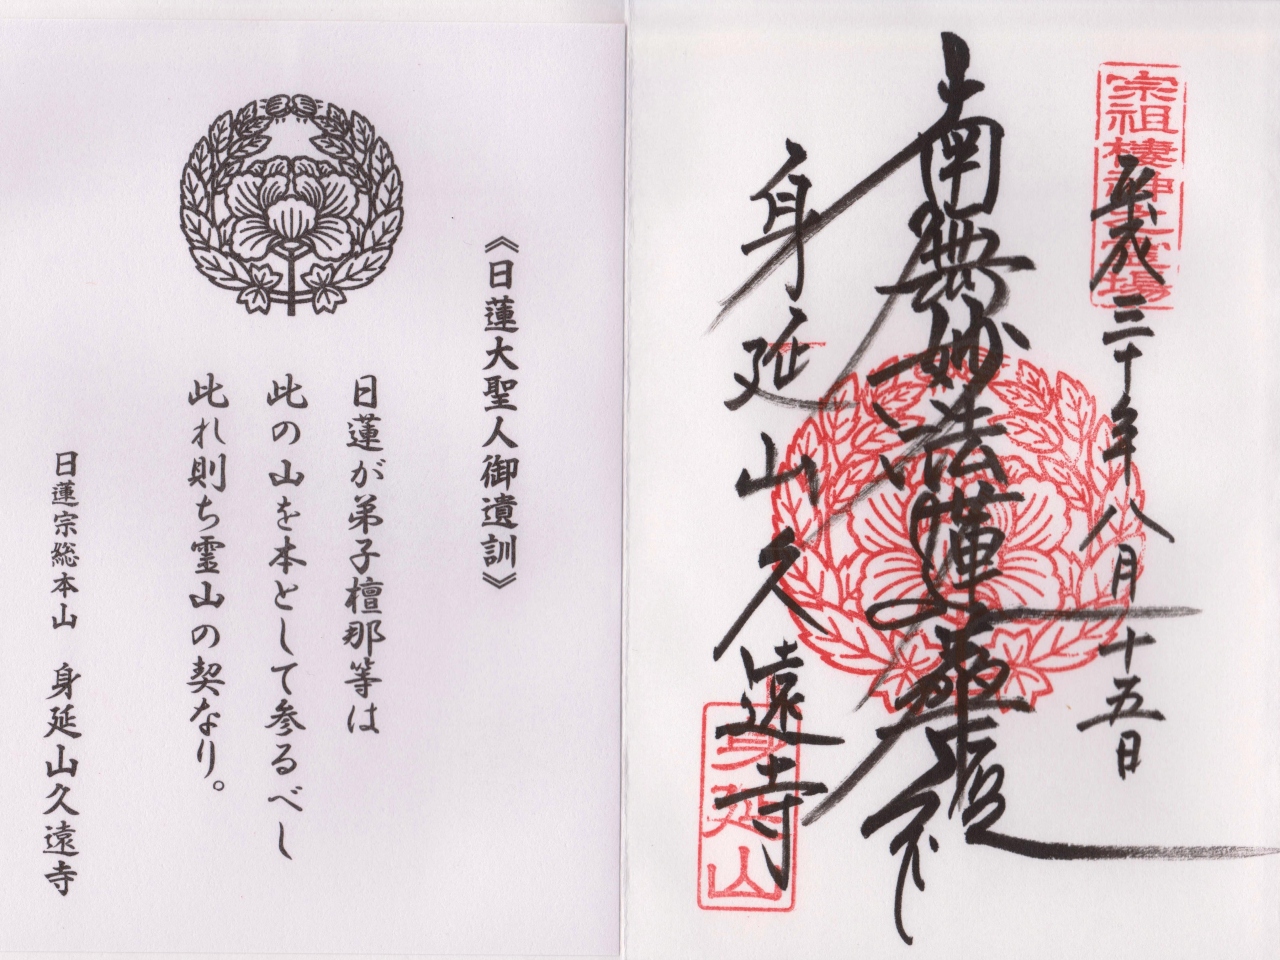 宗祖棲神之霊場
平成三十年八月十五日
南無妙法蓮華経
身延山久遠寺
身延山
《日蓮大聖人御遺訓》
日蓮が弟子檀那等は
此の山を本として参るべし
此れ則ち霊山の契なり。
日蓮宗総本山　身延山久遠寺